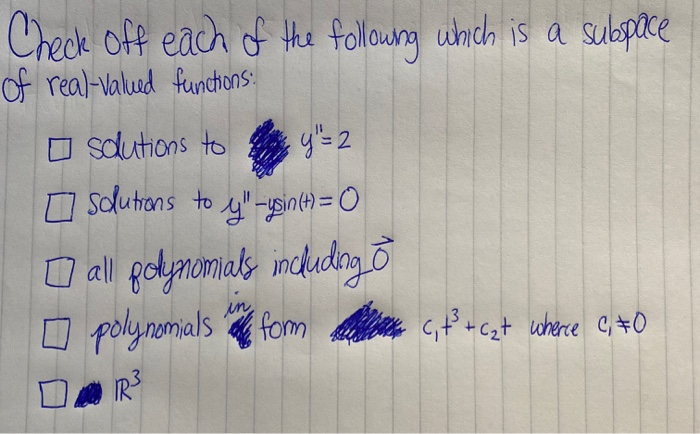 Check off each of the following which is a subspace
of real-valued functions:
□ solutions to y''=2
□ solutions to y''-ysin(t)=0
□ all polynomials including \vec{0}
□ polynomials in form c₁t³+c₂t where c₁≠0
□ ℝ³